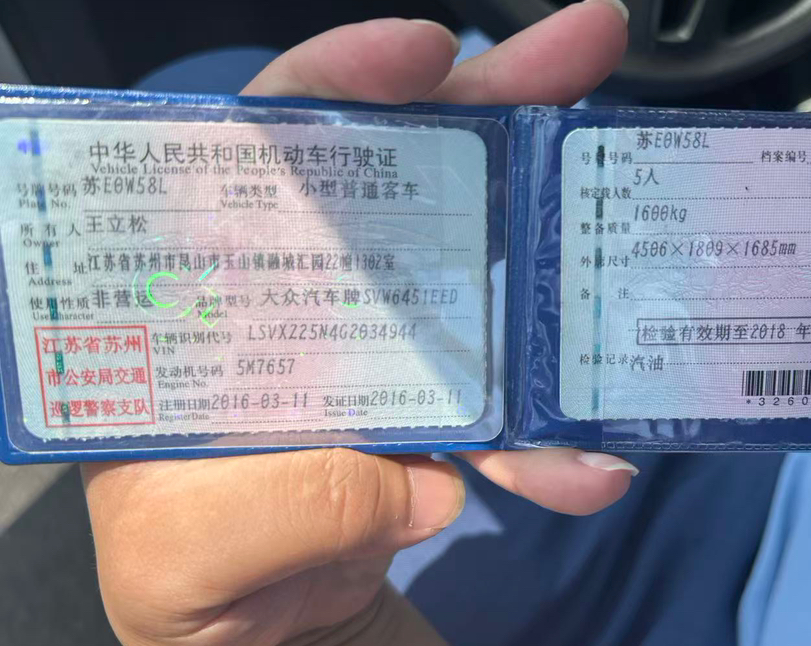 中华人民共和国机动车行驶证
Vehicle License of the People's Republic of China
号牌号码 苏E0W58L 车辆类型 小型普通客车
Plate No. Vehicle Type
所有人 王立松
Owner
住址 江苏省苏州市昆山市玉山镇融城汇园22幢1302室
Address
使用性质 非营运 品牌型号 大众汽车牌SVW6451EED
Use Character Model
车辆识别代号 LSVX225N4G2034944
VIN
发动机号码 5M7657
Engine No.
注册日期 2016-03-11 发证日期 2016-03-11
Register Date Issue Date
江苏省苏州
市公安局交通
巡逻警察支队
号牌号码 苏E0W58L 档案编号
核定载人数 5人
整备质量 1600kg
外廓尺寸 4506×1809×1685mm
备注
检验有效期至2018 年
检验记录 汽油
*3260